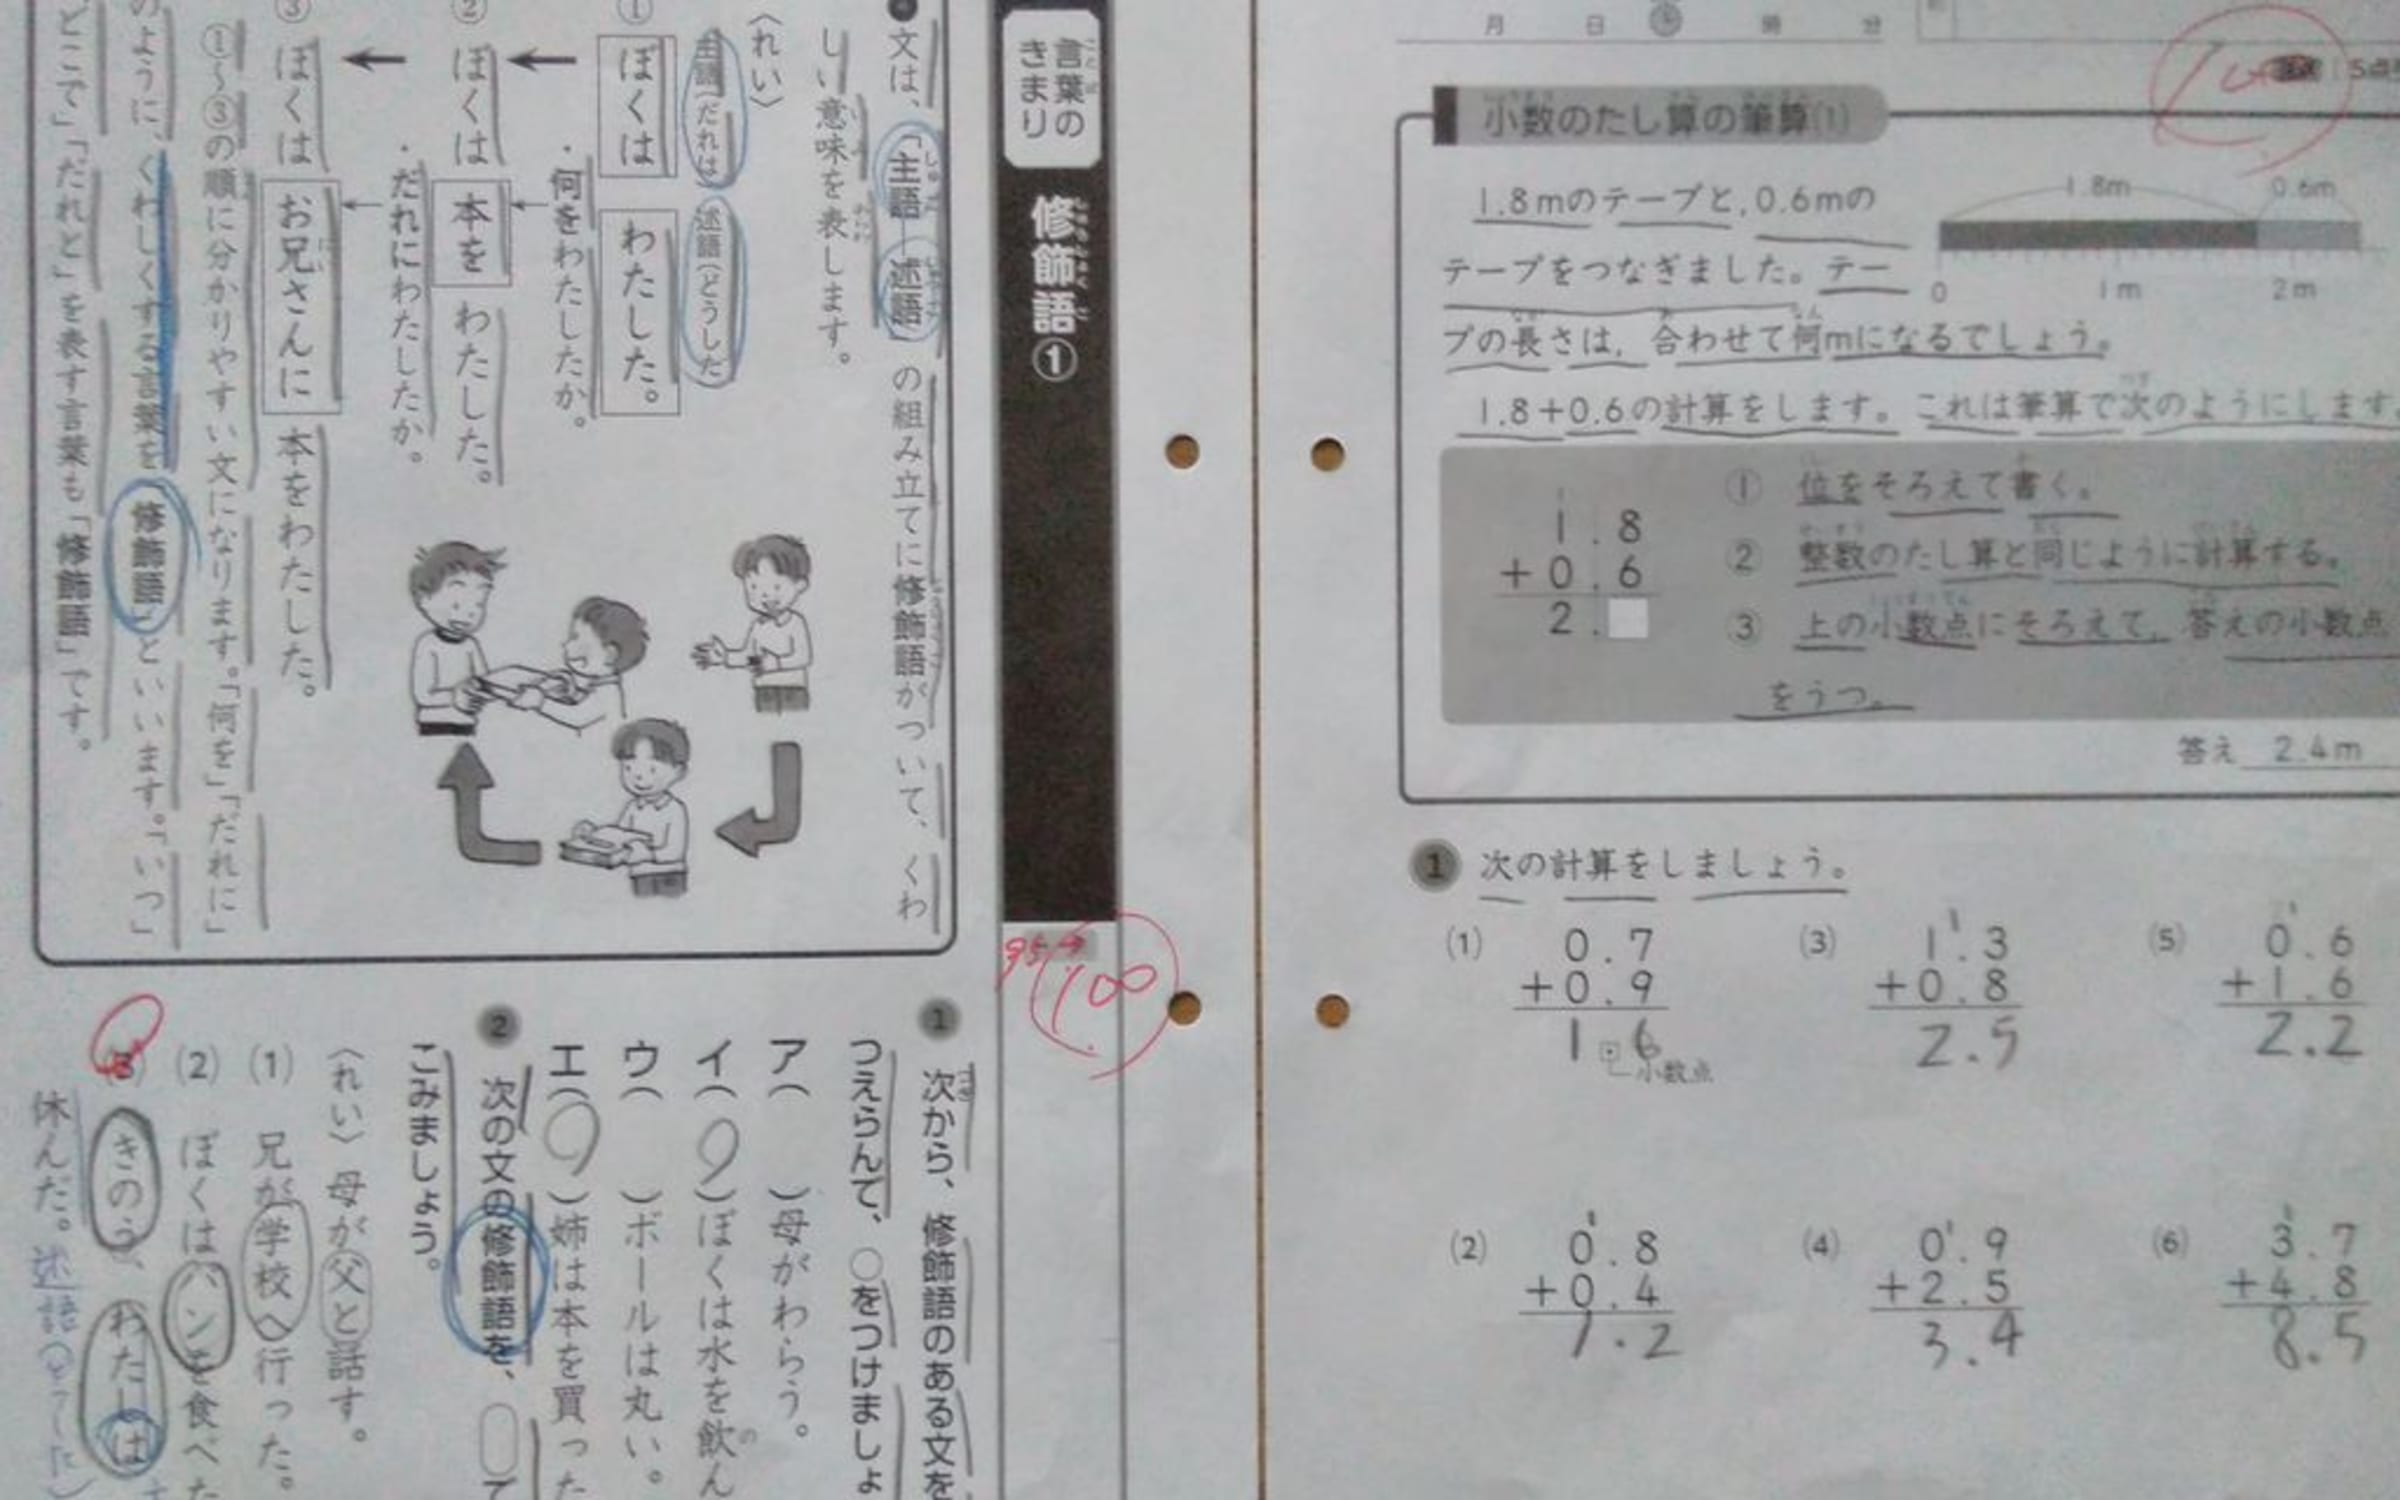 言葉の
きまり
修飾語①
文は、「主語―述語」の組み立てに修飾語がついて、くわ
しい意味を表します。
〈れい〉
主語(だれは) 述語(どうした
① ぼくは わたした。
・何をわたしたか。
② ぼくは 本を わたした。
・だれにわたしたか。
③ ぼくは お兄さんに 本をわたした。
①～③の順に分かりやすい文になります。「何を」「だれに」
のように、くわしくする言葉を「修飾語」といいます。「いつ」
どこで」「だれと」を表す言葉も「修飾語」です。
95→
100
1 次から、修飾語のある文を
つえらんで、○をつけましょ
ア( )母がわらう。
イ(○)ぼくは水を飲ん
ウ( )ボールは丸い。
エ(○)姉は本を買った
2 次の文の修飾語を、○で
こみましょう。
〈れい〉 母が父と話す。
(1) 兄が学校へ行った。
(2) ぼくはパンを食べた
(3) きのう、わたしは
休んだ。述語(どうした)
月 日 時 分
100
5点
小数のたし算の筆算(1)
1.8mのテープと,0.6mの
テープをつなぎました。テー
プの長さは,合わせて何mになるでしょう。
1.8m 0.6m
0 1m 2m
1.8+0.6の計算をします。これは筆算で次のようにします。
1
1.8
+0.6
2.
① 位をそろえて書く。
② 整数のたし算と同じように計算する。
③ 上の小数点にそろえて,答えの小数点
をうつ。
答え 2.4m
1 次の計算をしましょう。
(1) 0.7
+0.9
1.6
小数点
(3) 1.3
+0.8
2.5
(5) 0.6
+1.6
2.2
(2) 0.8
+0.4
1.2
(4) 0.9
+2.5
3.4
(6) 3.7
+4.8
8.5